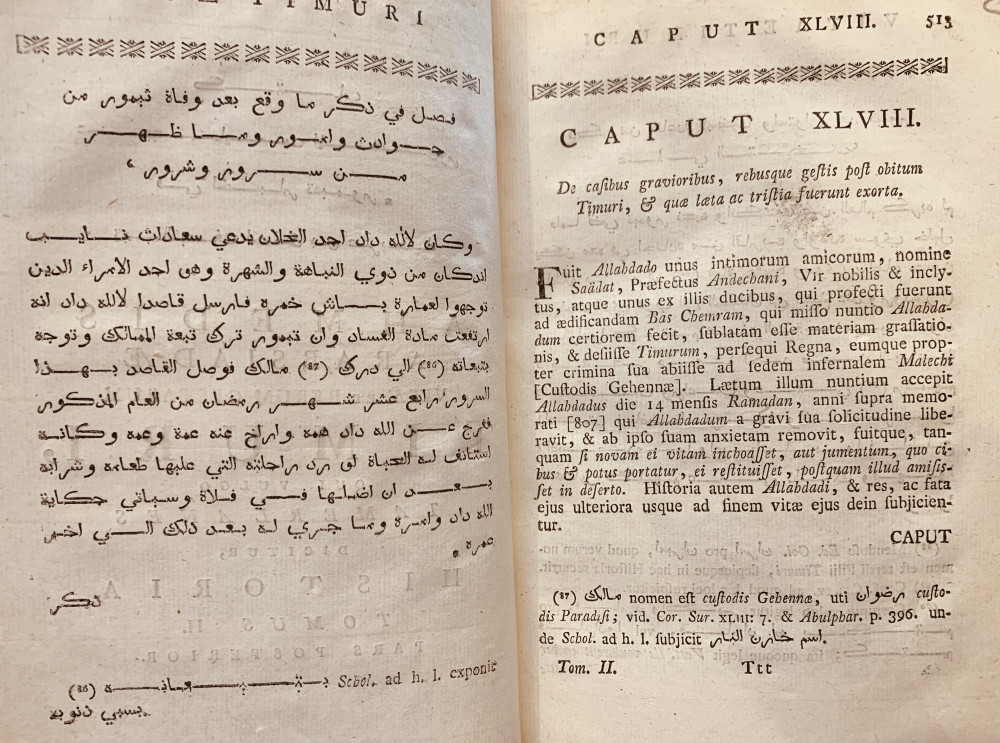 Æ TIMURI
فصل في ذكر ما وقع بعد وفاة تيمور من
حوادث وامور وما ظهر
من سرور وشرور ،
وكان لالله داد احد الخلان يدعي سعادات نايب
اندكان من ذوي النباهة والشهرة وهو احد الامراء الذين
توجهوا لعمارة باش خمره فارسل قاصدا لالله داد انه
ارتفعت مادة الفساد وان تيمور ترك تبعة الممالك وتوجه
بتبعاته (86) الي درك (87) مالك فوصل القاصد بهذا
السرور رابع عشر شهر رمضان من العام المذكور
ففرج عن الله داد همه وازاح عنه غمة وغمه وكانه
استانف له الحياة او رد راحلته التي عليها طعامه وشرابه
بعد ان اضلها في فلاة وسياتي حكاية
الله داد وامره وما جري له بعد ذلك الي اخر
عمره .
ذكر
(86) بتبعاته Schol. ad h. l. exponit
بسبي ذنوبه
CAPUT XLVIII. 513
CAPUT XLVIII.
De casibus gravioribus, rebusque gestis post obitum
Timuri, & quæ læta ac tristia fuerunt exorta.
Fuit Allahdado unus intimorum amicorum, nomine
Saädat, Præfectus Andechani, Vir nobilis & incly-
tus, atque unus ex illis ducibus, qui profecti fuerunt
ad ædificandam Bâs Chemram, qui misso nuntio Allahda-
dum certiorem fecit, sublatam esse materiam grassatio-
nis, & desiisse Timurum, persequi Regna, eumque prop-
ter crimina sua abiisse ad sedem infernalem Malechi
[Custodis Gehennæ]. Lætum illum nuntium accepit
Allahdadus die 14 mensis Ramadan, anni supra memo-
rati [807] qui Allahdadum a gravi sua solicitudine libe-
ravit, & ab ipso suam anxietam removit, fuitque, tan-
quam si novam ei vitam inchoasset, aut jumentum, quo ci-
bus & potus portatur, ei restituisset, postquam illud amisis-
set in deserto. Historia autem Allahdadi, & res, ac fata
ejus ulteriora usque ad finem vitæ ejus dein subjicien-
tur.
CAPUT
(87) مالك nomen est custodis Gehennæ, uti رضوان custo-
dis Paradisi; vid. Cor. Sur. XLIII: 7. & Abulphar. p. 396. un-
de Schol. ad h. l. subjicit اسم خازن النار
Tom. II. Ttt